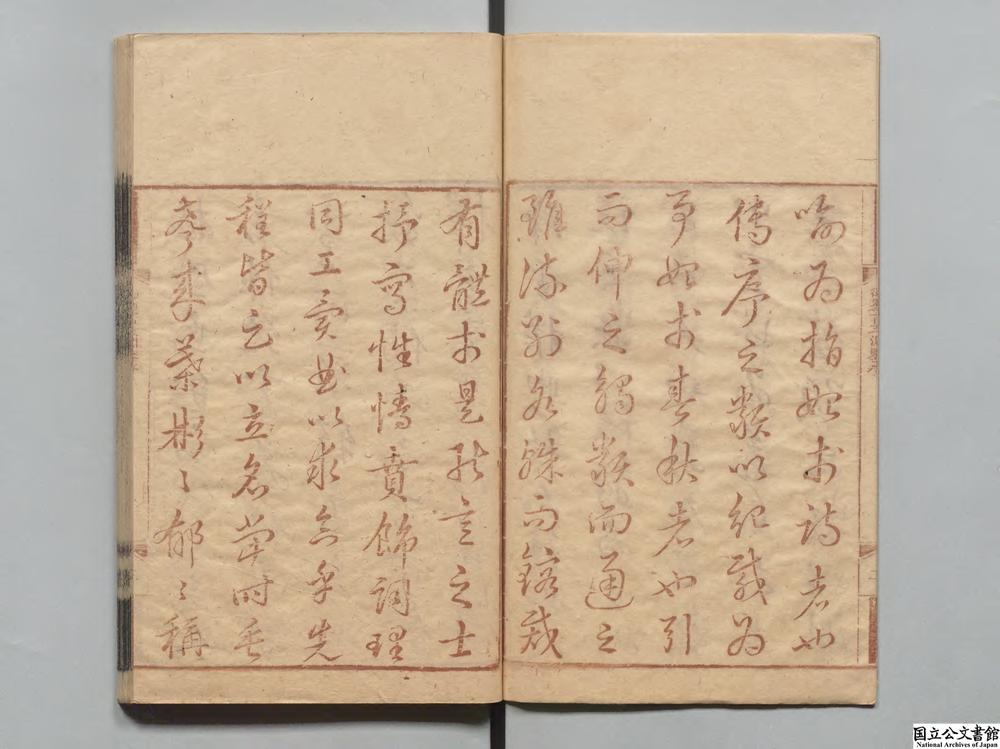 喻為指始於詩者也
傳序之類以紀載為
事始於春秋者也引
而伸之觸類而通之
雖流別各殊而鎔裁
有體於是能言之士
抒寫性情賁飾詞理
同工異曲以求合乎先
程皆足以立名當時垂
來葉彬〻郁〻稱
国立公文書館
National Archives of Japan